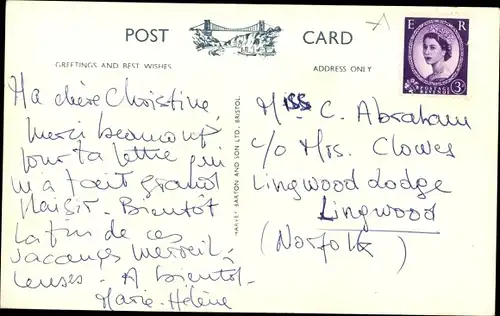 POST CARD
GREETINGS AND BEST WISHES
ADDRESS ONLY
Ma chère Christine,
Merci beaucoup
pour ta lettre qui
m'a fait grand
plaisir. Bientôt
la fin de ces
vacances merveil-
leuses. A bientôt.
Marie-Hélène
HARVEY BARTON AND SON LTD., BRISTOL.
E R
POSTAGE
3D
Miss C. Abraham
c/o Mrs. Clowes
Lingwood Lodge
Lingwood
(Norfolk)